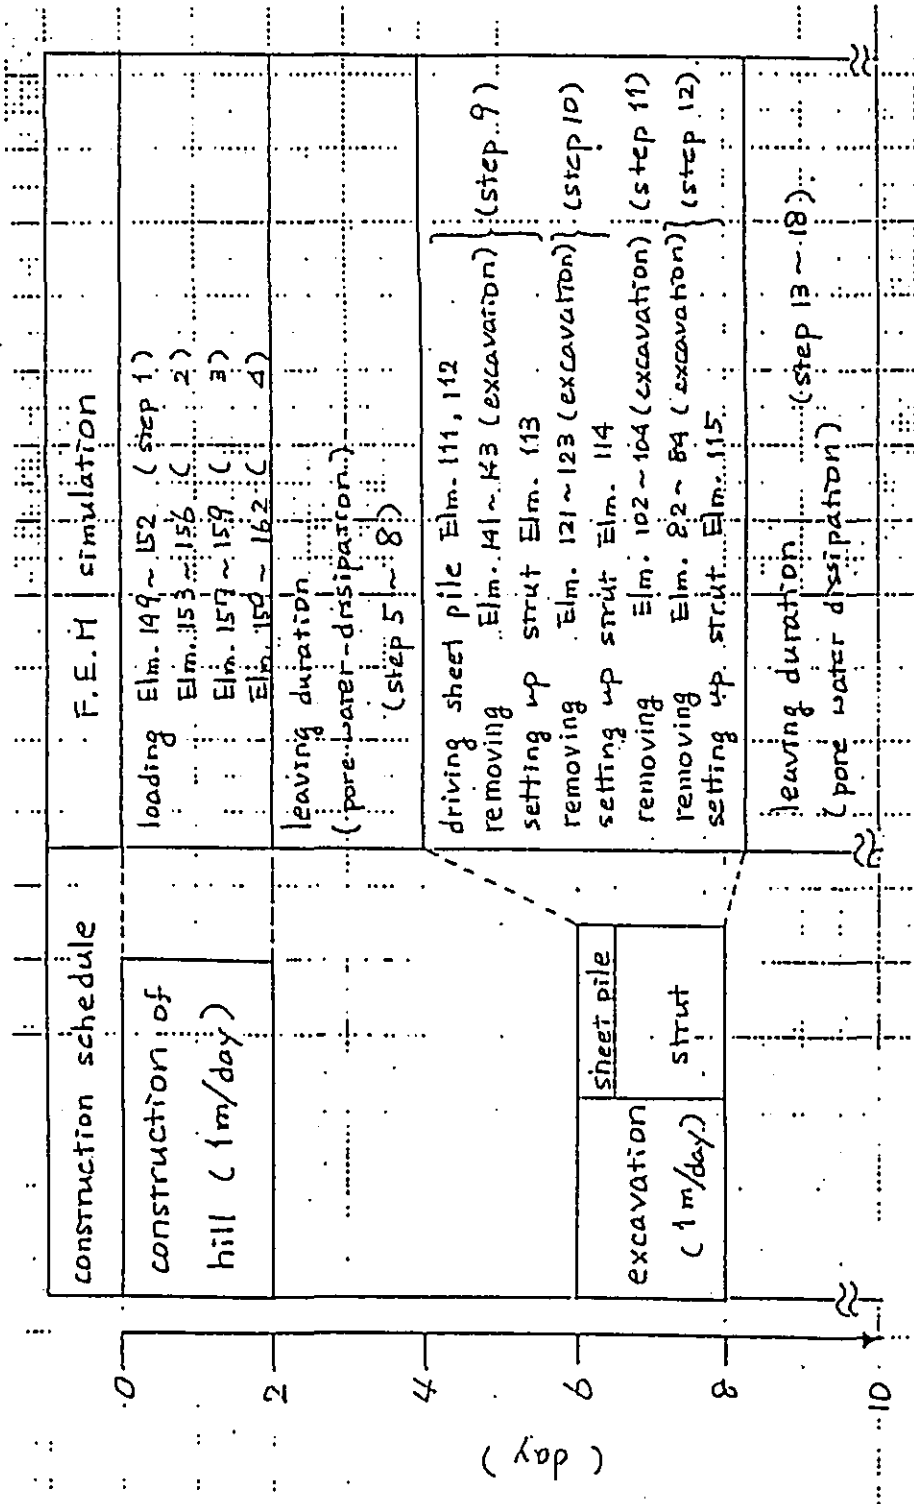 construction schedule
F.E.M simulation
( day )
0
2
4
6
8
10
construction of
hill ( 1m/day )
sheet pile
excavation
( 1m/day )
strut
loading Elm. 149 ~ 152 ( step 1 )
Elm. 153 ~ 156 ( 2 )
Elm. 157 ~ 159 ( 3 )
Elm. 159 ~ 162 ( 4 )
leaving duration
( pore water dissipation )
( step 5 ~ 8 )
driving sheet pile Elm. 111, 112
removing Elm. 141 ~ 143 ( excavation ) ( step 9 )
setting up strut Elm. 113
removing Elm. 121 ~ 123 ( excavation ) ( step 10 )
setting up strut Elm. 114
removing Elm. 102 ~ 104 ( excavation ) ( step 11 )
removing Elm. 82 ~ 84 ( excavation ) ( step 12 )
setting up strut Elm. 115
leaving duration ( step 13 ~ 18 ).
( pore water dissipation )